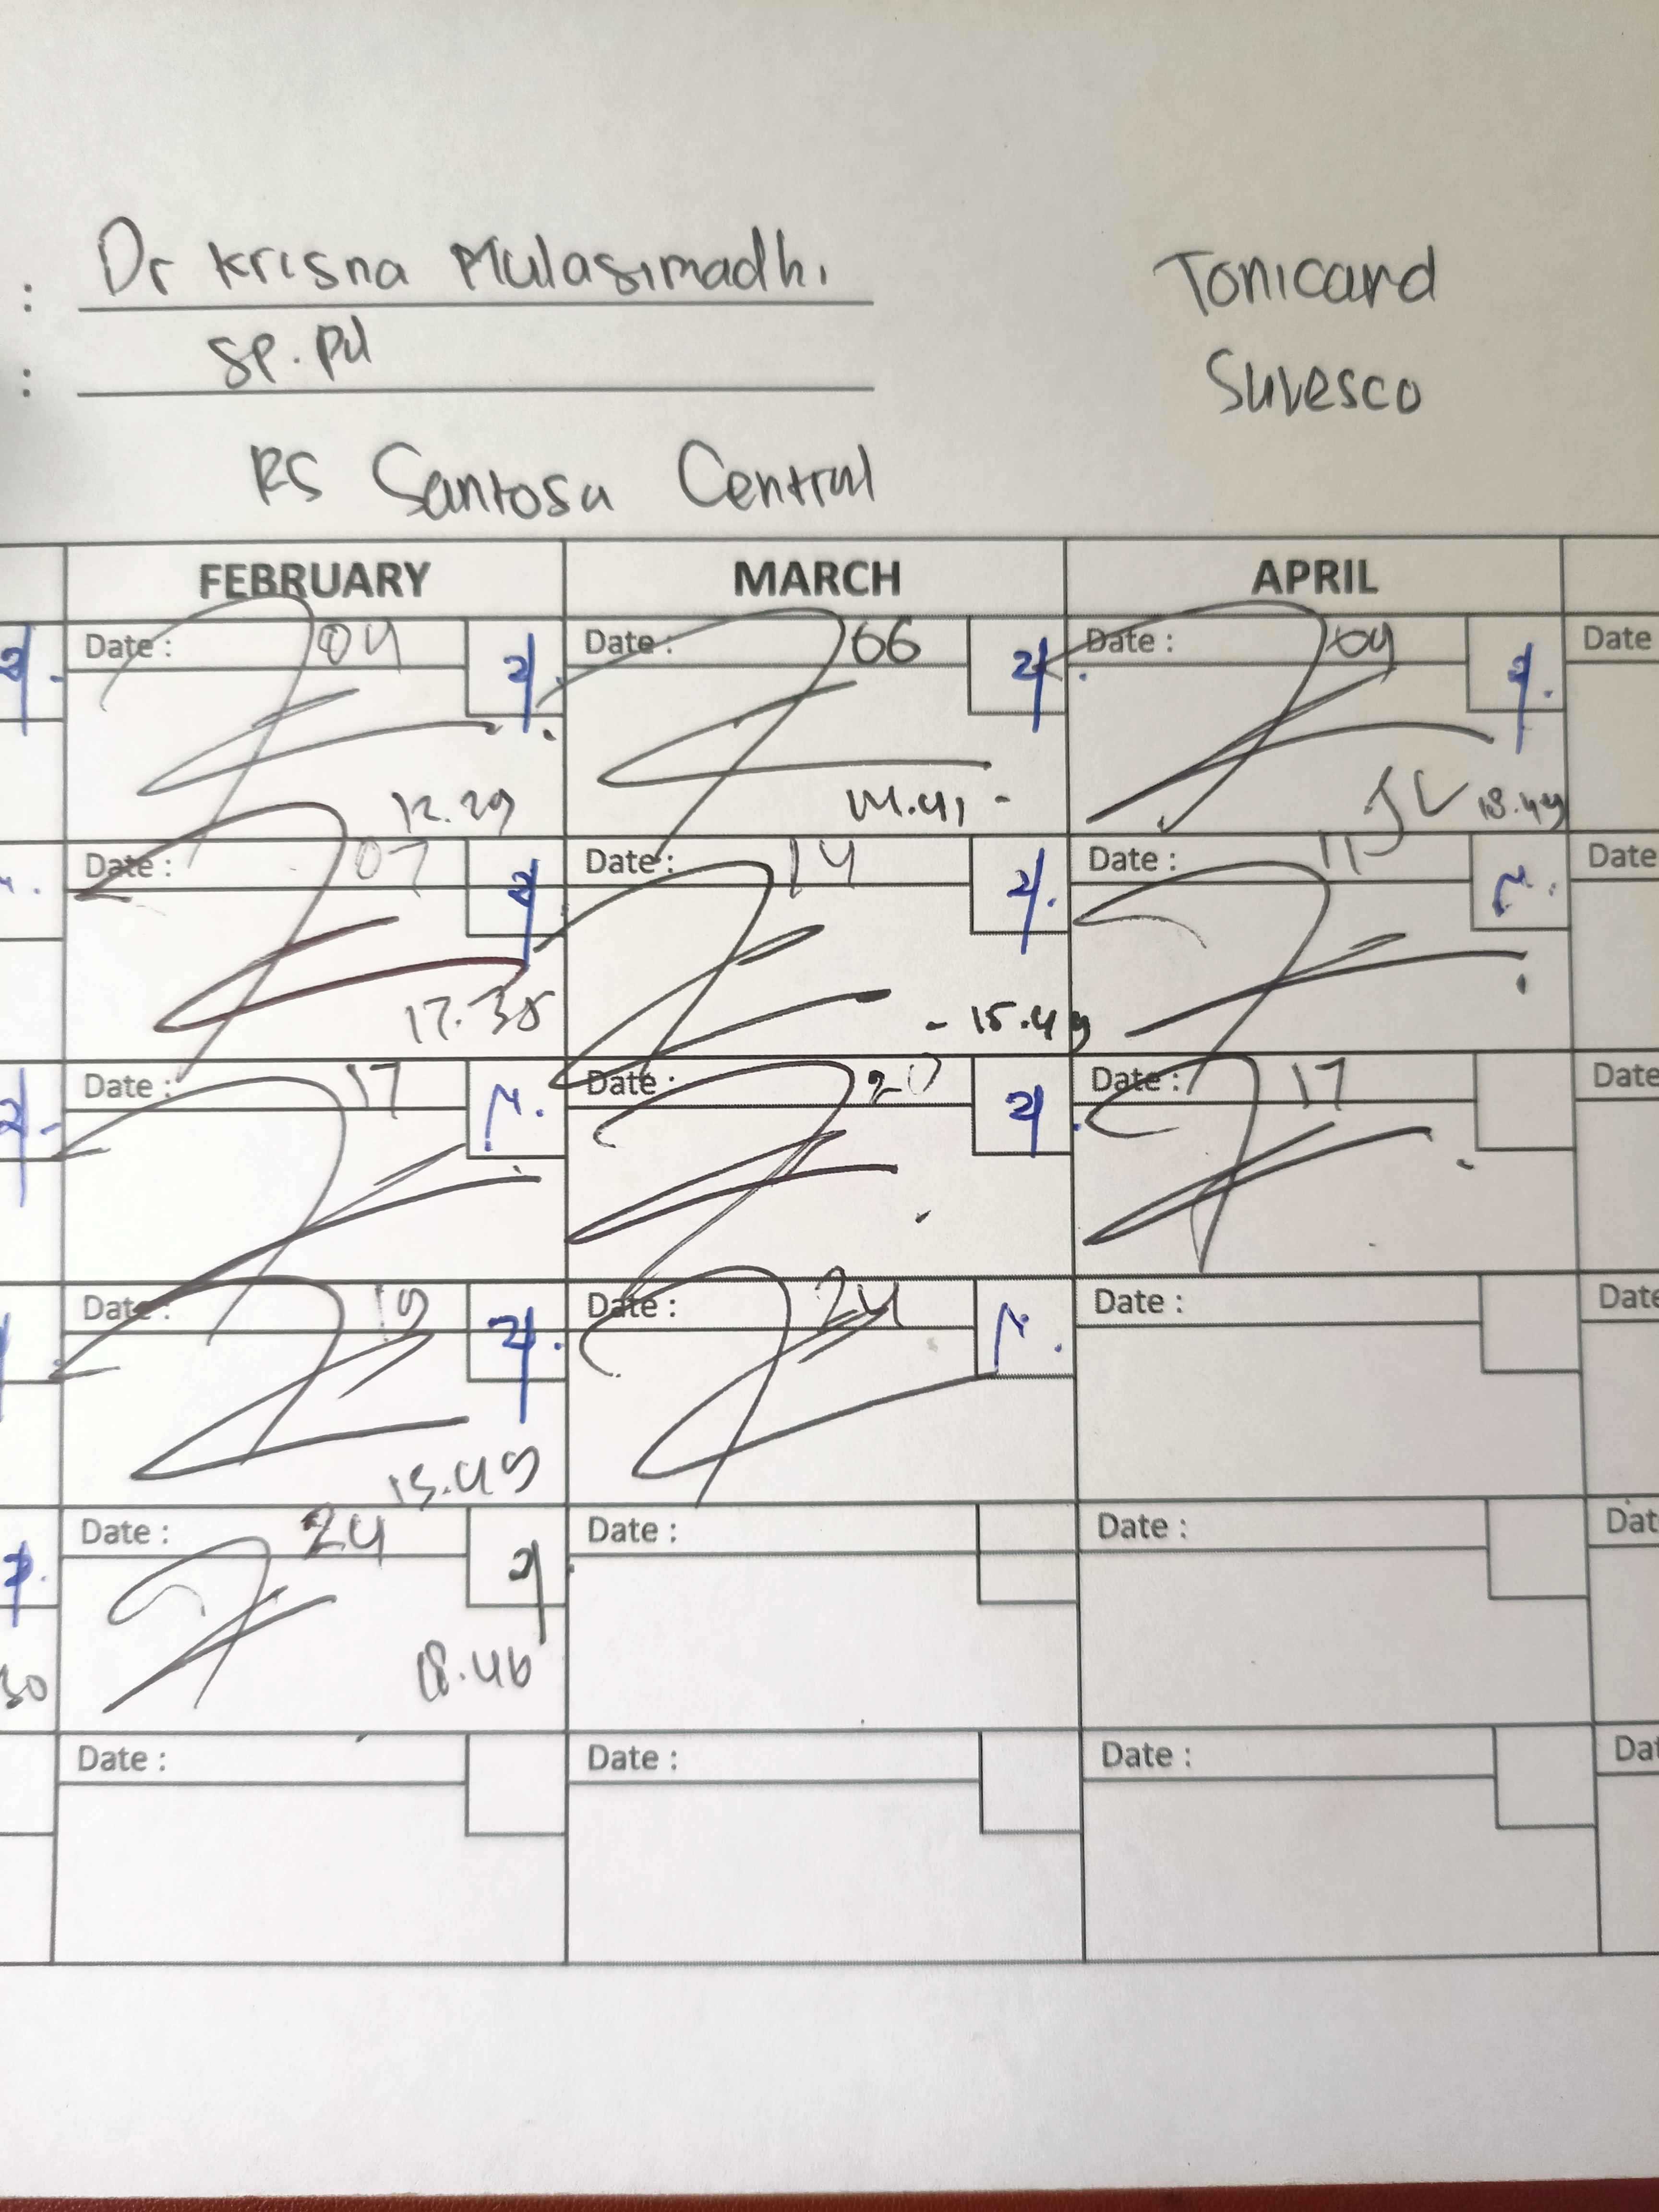 : Dr Krisna Mulasimadhi
: Sp.Pd
Tonicard
Suvesco
RS Santosa Central
FEBRUARY MARCH APRIL
Date : 04 Date : 06 Date : 09 Date
12.29 14.41 - 18.49
Date : 07 Date : 14 Date : 11 Date
17.38 - 15.49
Date : 17 Date : 20 Date : 17 Date
Date : 19 Date : 24 Date : Date
15.49
Date : 24 Date : Date : Dat
30 18.46
Date : Date : Date : Dat